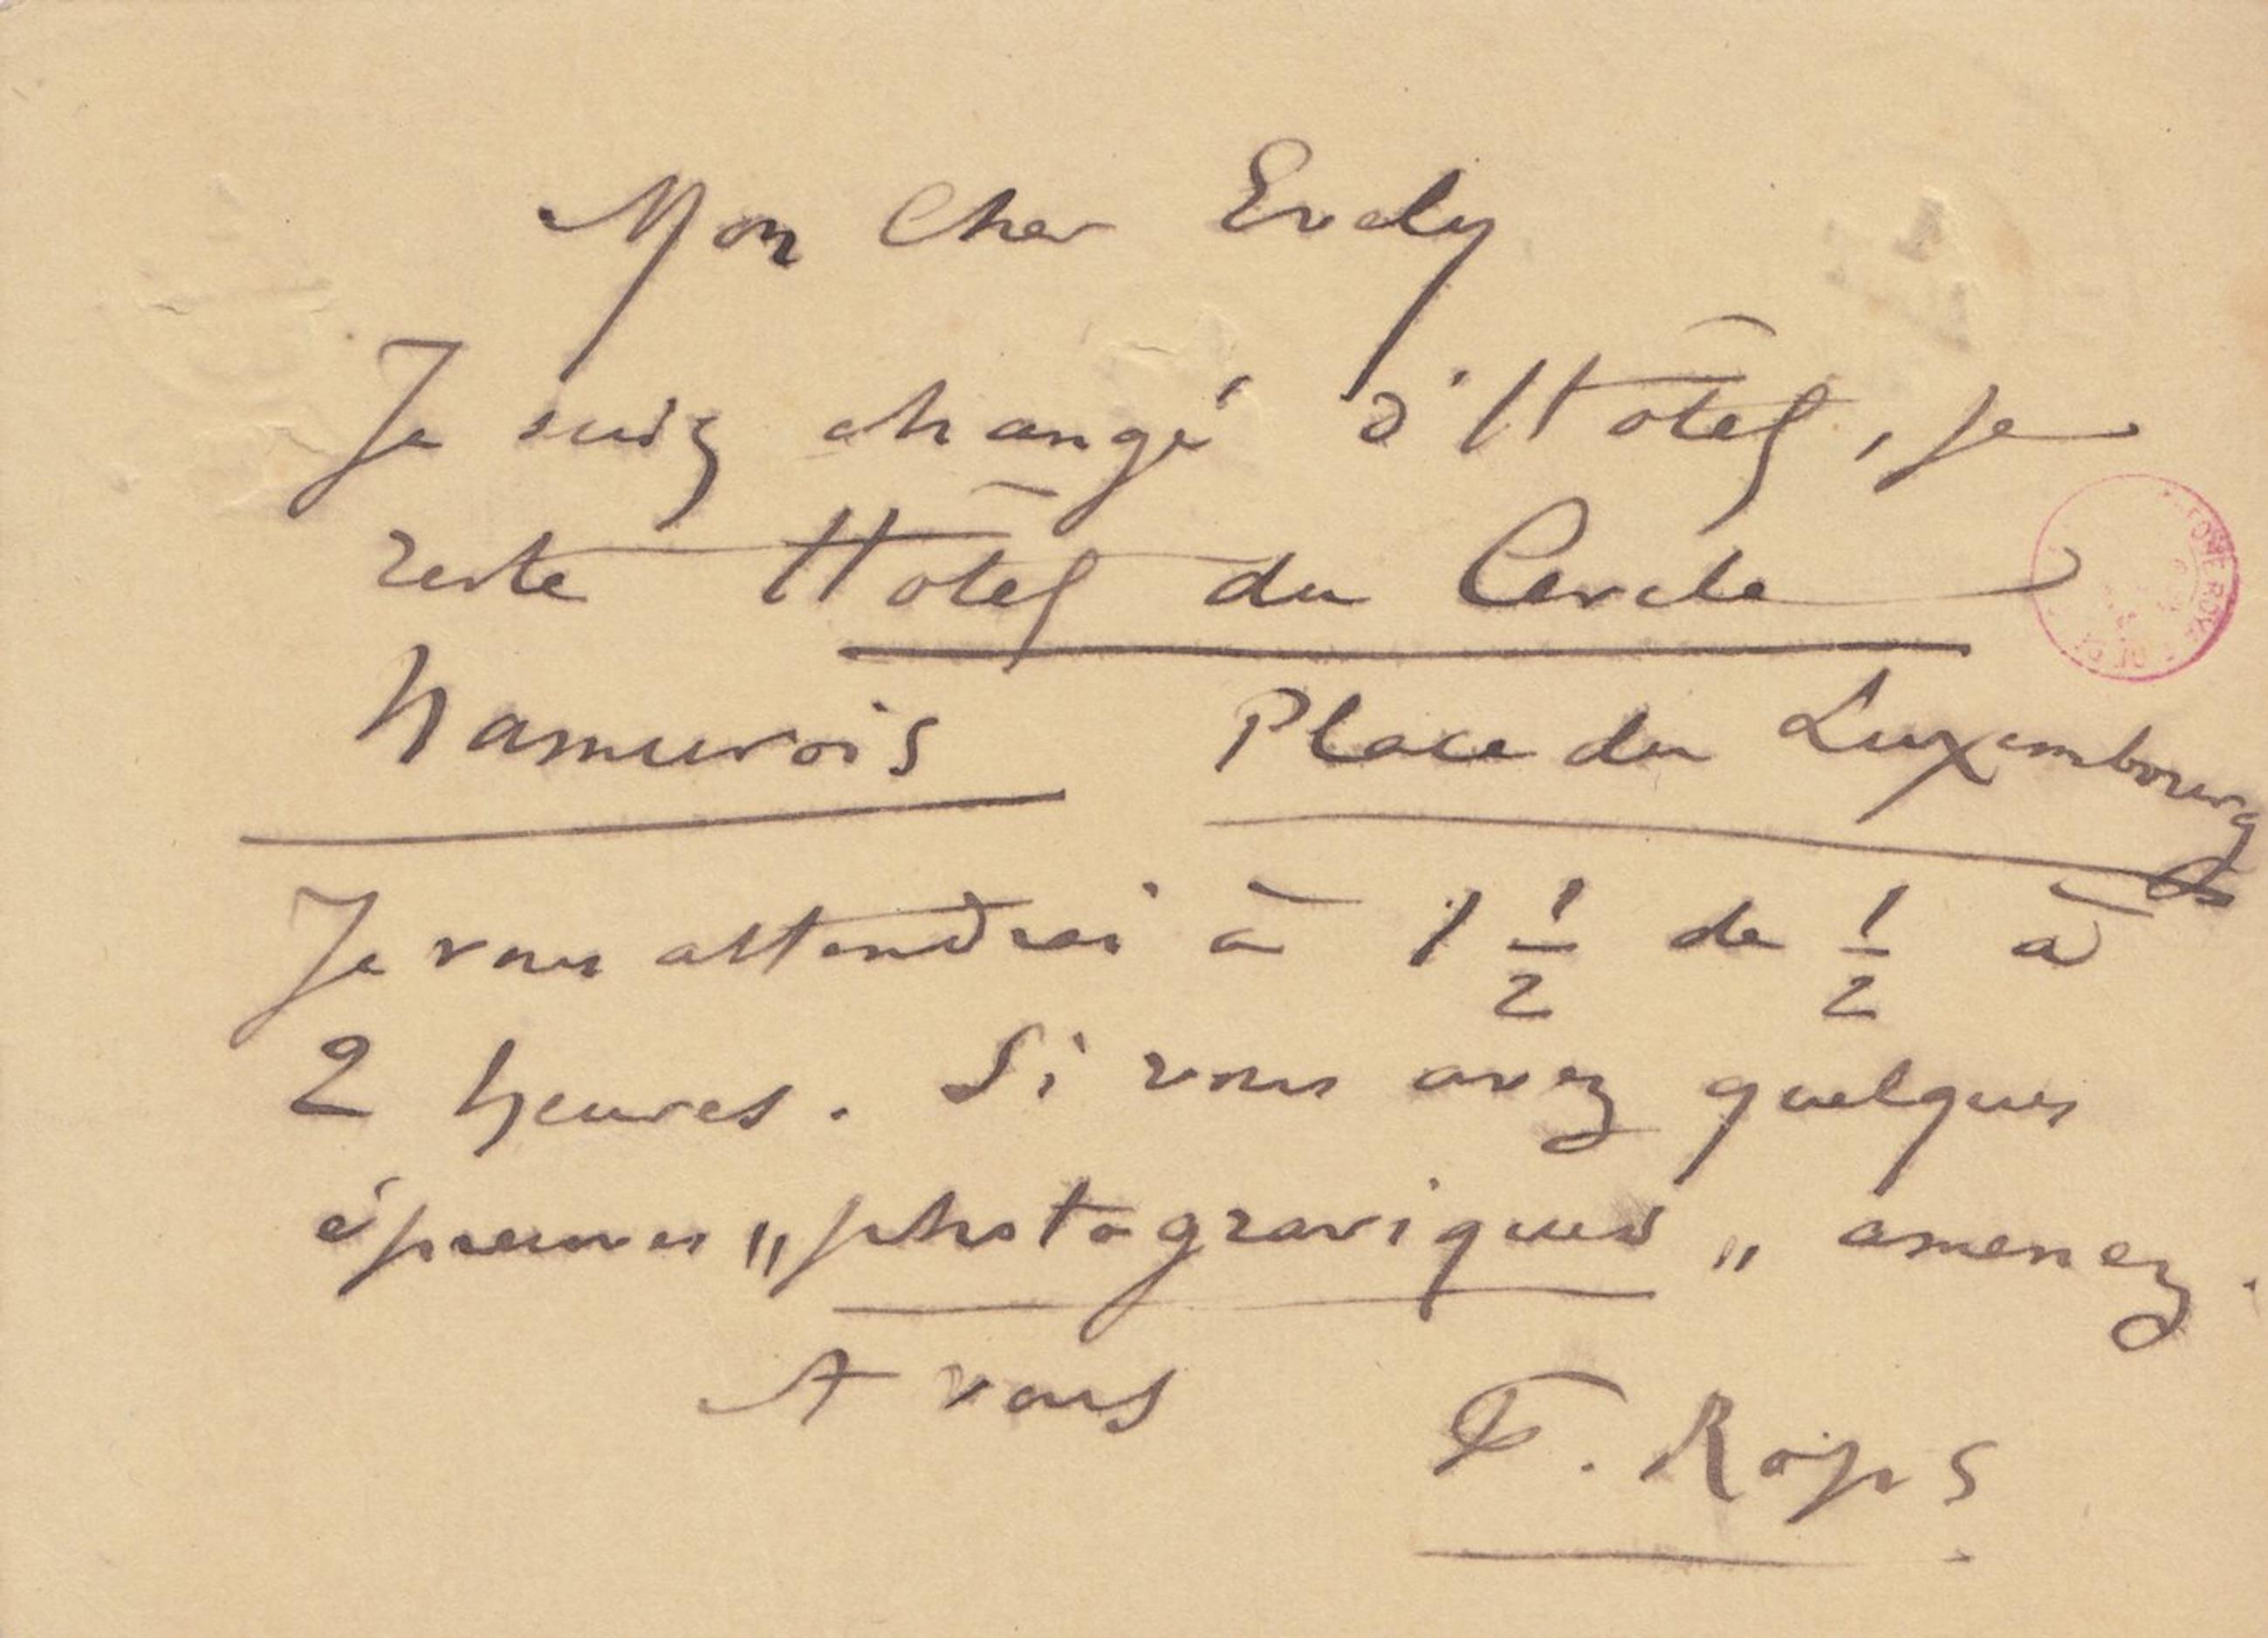 Mon Cher Evely
Je suis changé d'Hôtel, je
reste Hôtel du Cercle
Namurois Place du Luxembourg
Je vous attendrai à 1 1/2 de 1/2 à
2 heures. Si vous avez quelques
épreuves „photograviques„ amenez.
A vous
F. Rops